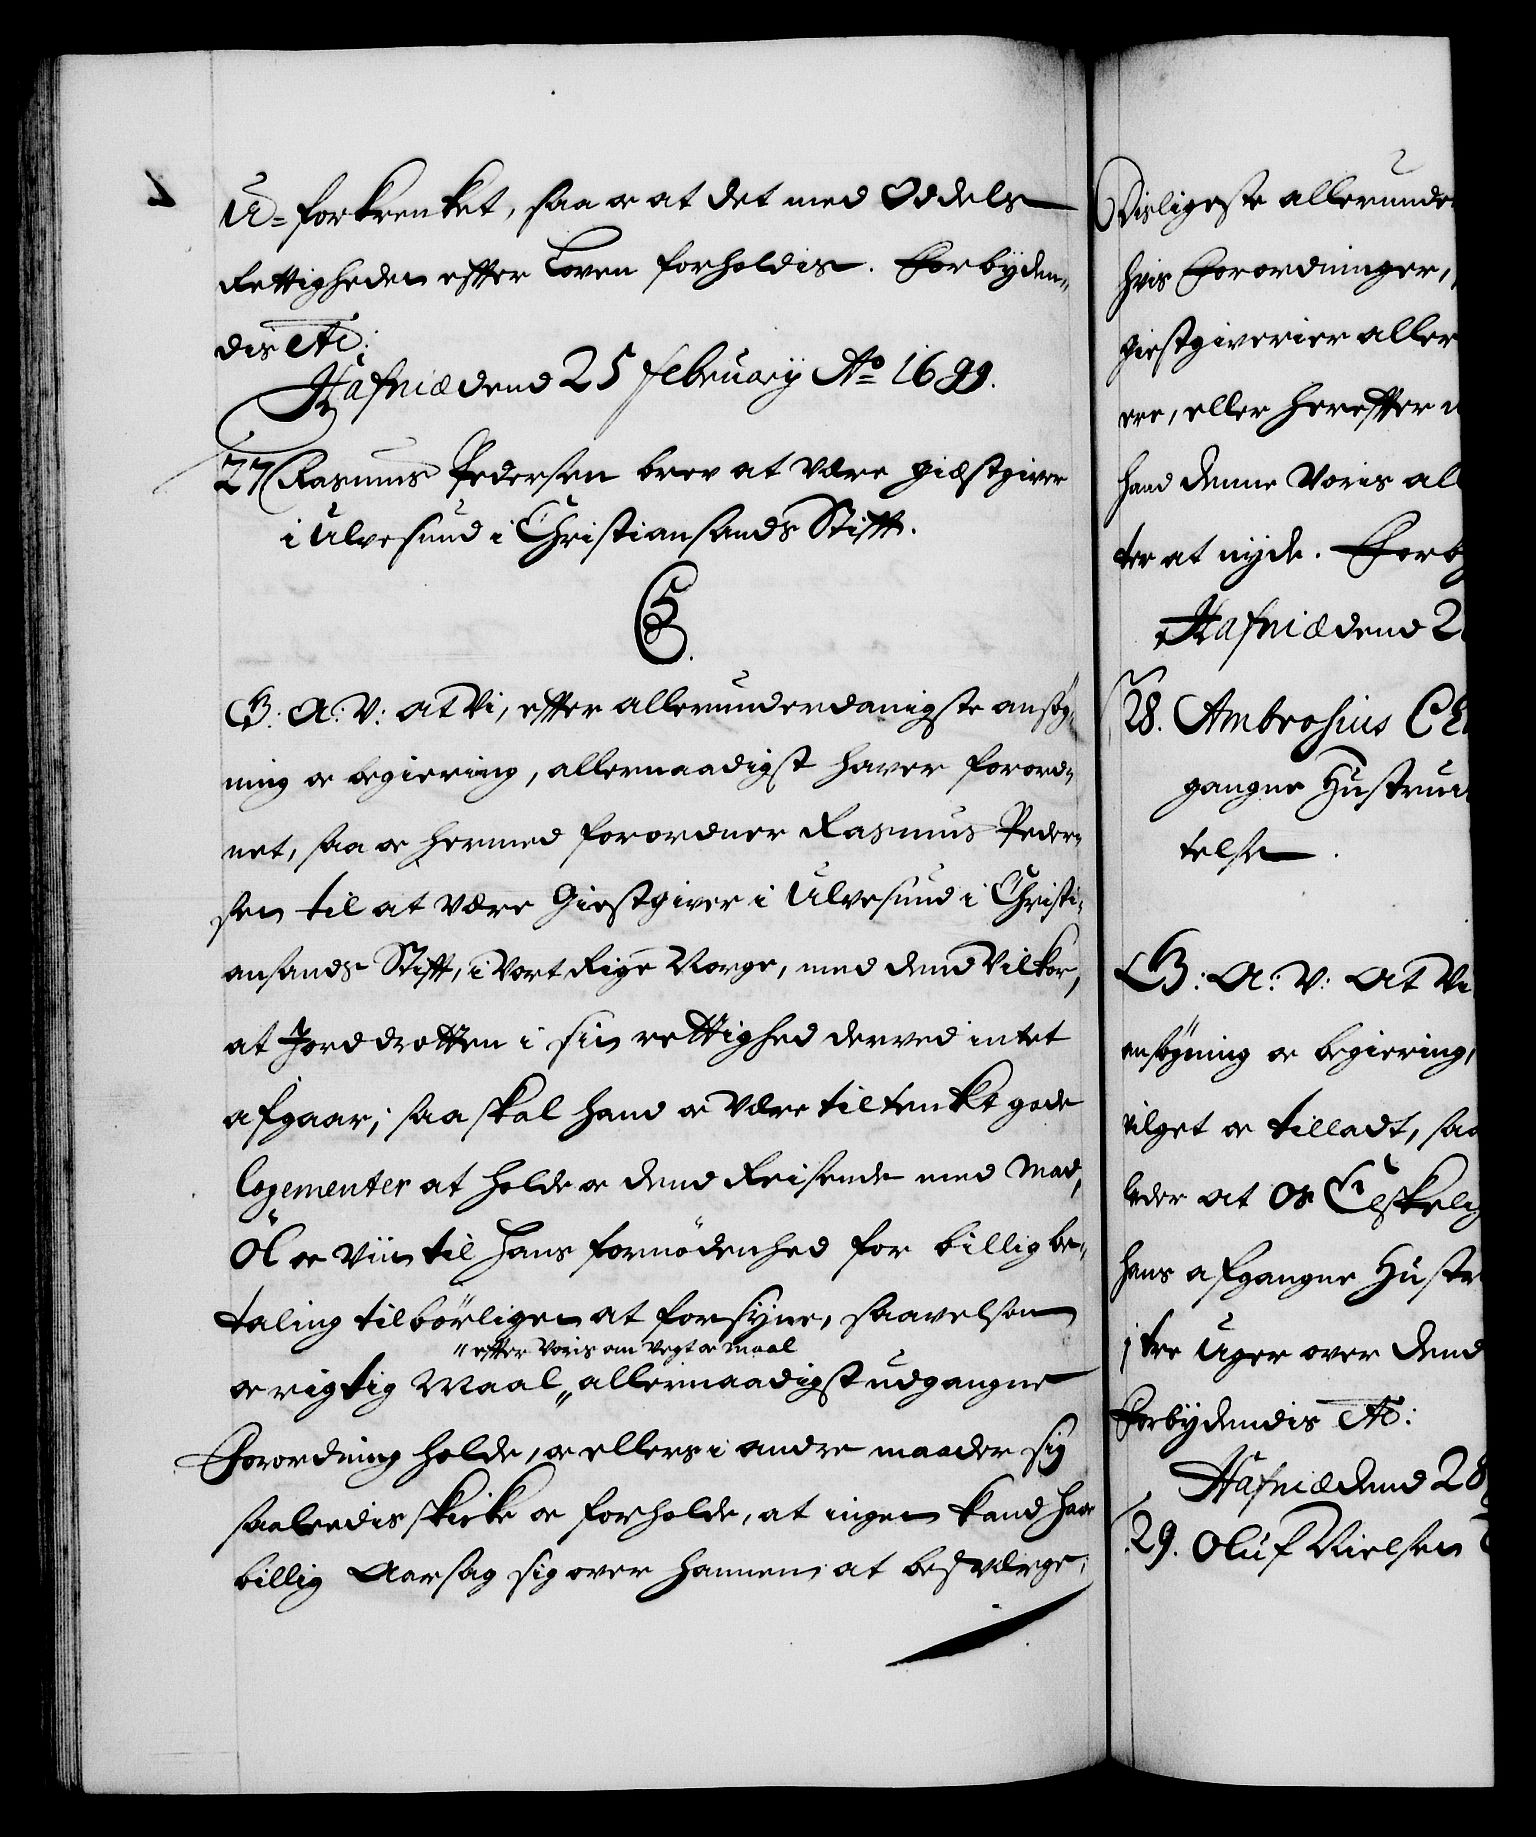 U-forkrenket, saa oc at det med Oddels
Rettigheden effter Loven forholdis. Forbyden-
dis etc:
Hafniæ dend 25 februarij Ao 1699.
27 Rasmus Pedersen brev at være giæstgiver
i Ulvesund i Christiansands Stifft.
C5.
G: A: V: at Vi, effter allerunderdanigste ansøg-
ning oc begiering, allernaadigst haver forord-
net, saa oc hermed forordner Rasmus Peder-
sen til at være Giestgiver i Ulvesund i Christi-
ansands Stifft, i Vort Rige Norge, med dend Vilkor,
at Jorddrotten i sin rettighed derved intet
afgaar; saa skal hand oc være tiltenkt gode
logementer at holde oc dend Reisende med Mad,
Öl oc Viin til hans fornödenhed for billig be-
taling tilbörligen at forsyne, saavelsom
" effter Voris om Vegt oc Maal
oc rigtig Maal „ allernaadigst udgangne
Forordning holde, oc ellers i andre maader sig
saaleedis skicke oc forholde, at ingen kand have
billig Aarsag sig over hannem at besværge;
Disligeste allerunde
hvis Forordninger,
giestgiverier aller
ere, eller hereffter
hand denne Voris al
ter at nyde. Forb
Hafniæ dend 2
28. Ambrosius Ch
gangne Hustrues
telse.
G: A: V: At Vi
ansögning oc begiering,
vilget oc tilladt, saa
lader at Os Elskelig
hans afgangne Hustr
i tre Uger over dend
Forbydendis etc:
Hafniæ dend 28
29. Oluf Nielsen